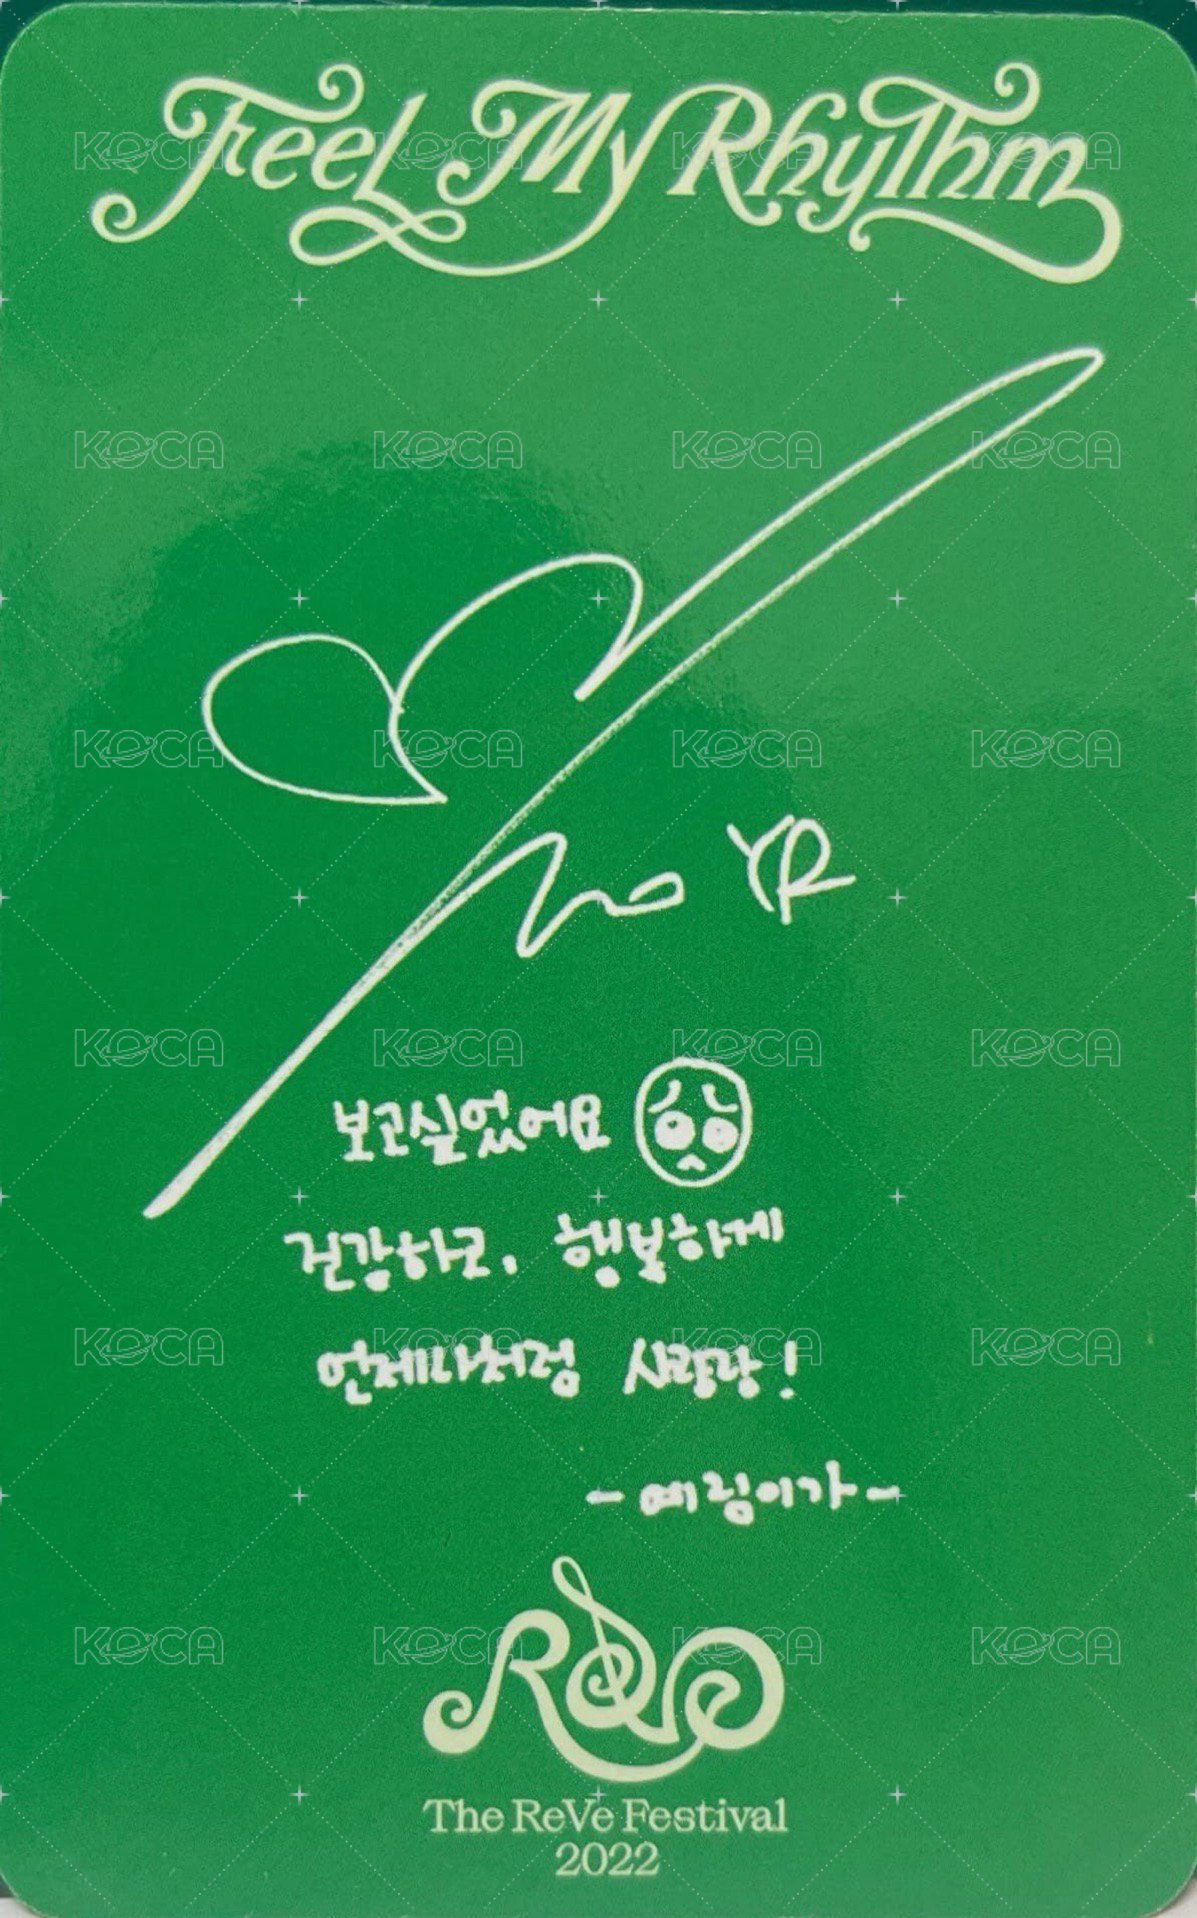 Feel My Rhythm
YR
보고싶었어요
건강하고, 행복하게
언제나처럼 사랑랑!
- 예림이가 -
ReVe
The ReVe Festival
2022
KOCA